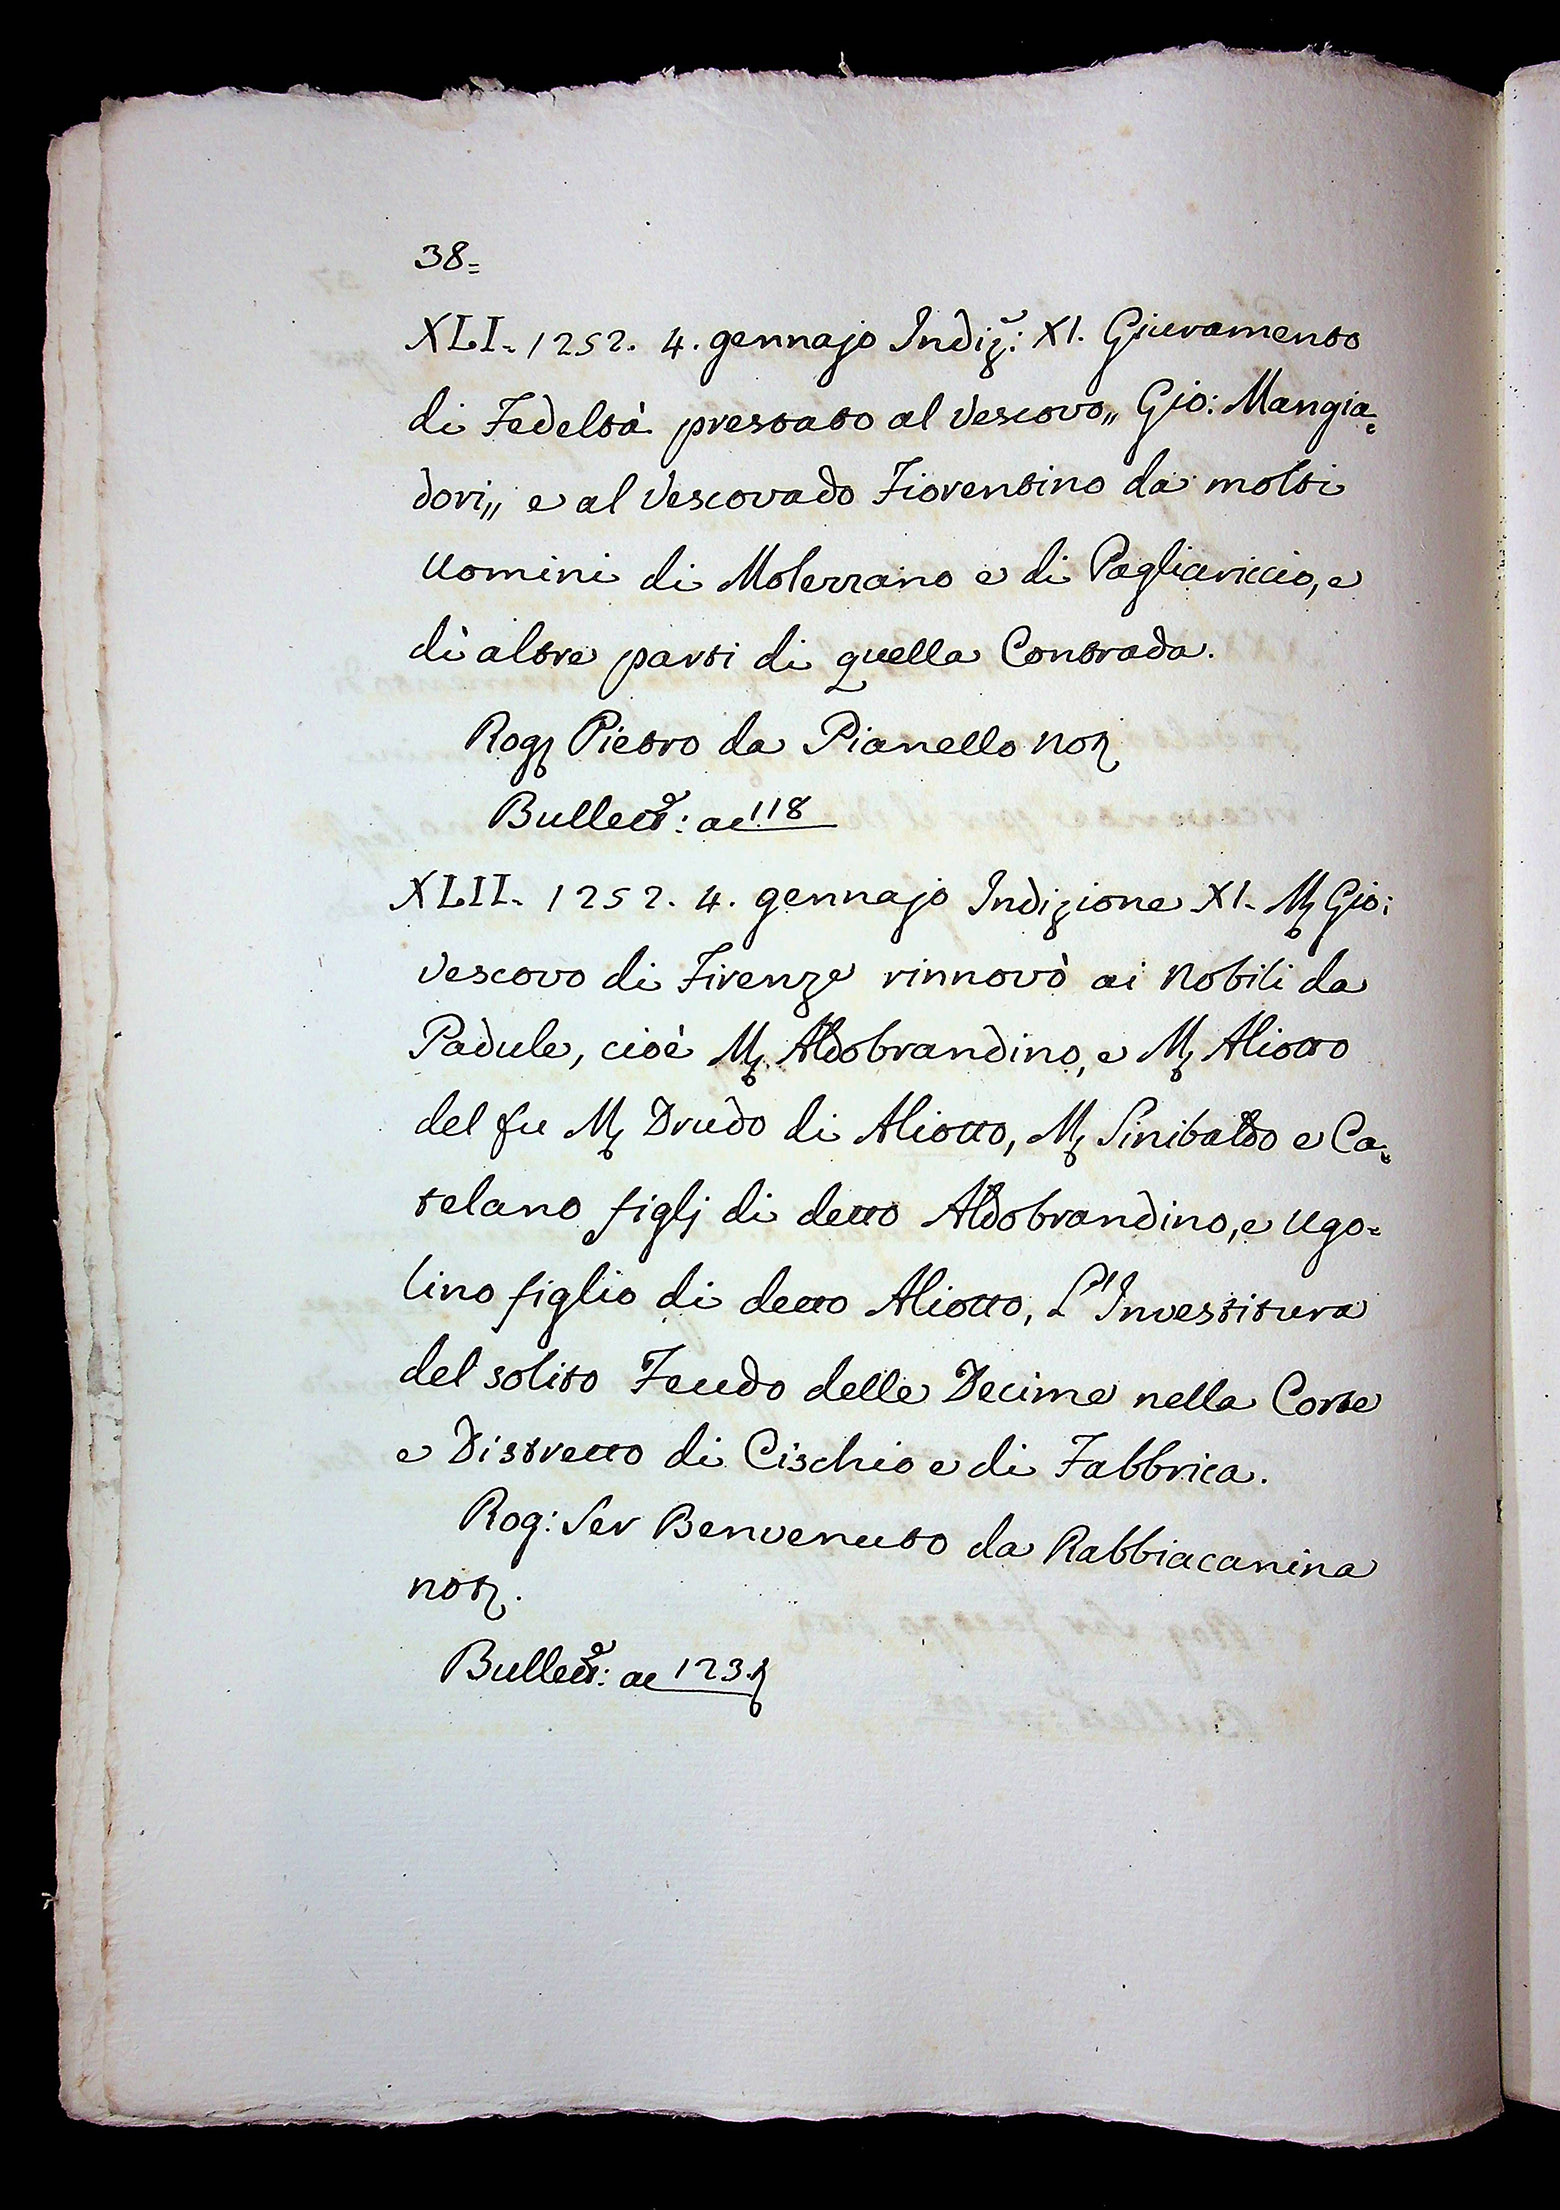 38=
XLI. 1252. 4. gennajo Indiz:̃ XI. Giuramento
di Fedeltà prestato al Vescovo,, Gio: Mangia=
dori,, e al Vescovado Fiorentino da molti
Uomini di Molezzano e di Pagliariccio, e
di altre parti di quella Contrada.
Rog Pietro da Pianello Not
Bullett: ac 118
XLII. 1252. 4. gennajo Indizione XI. M Gio:
Vescovo di Firenze rinnovò ai Nobili da
Padule, cioè M. Aldobrandino, e M Aliotto
del fu M Drudo di Aliotto, M Sinibaldo e Ca=
telano figlj di detto Aldobrandino, e Ugo=
lino figlio di detto Aliotto, L'Investitura
del solito Feudo delle Decime nella Corte
e Distretto di Cischio e di Fabbrica.
Rog: Ser Benvenuto da Rabbiacanina
not.
Bullett: ac 123.